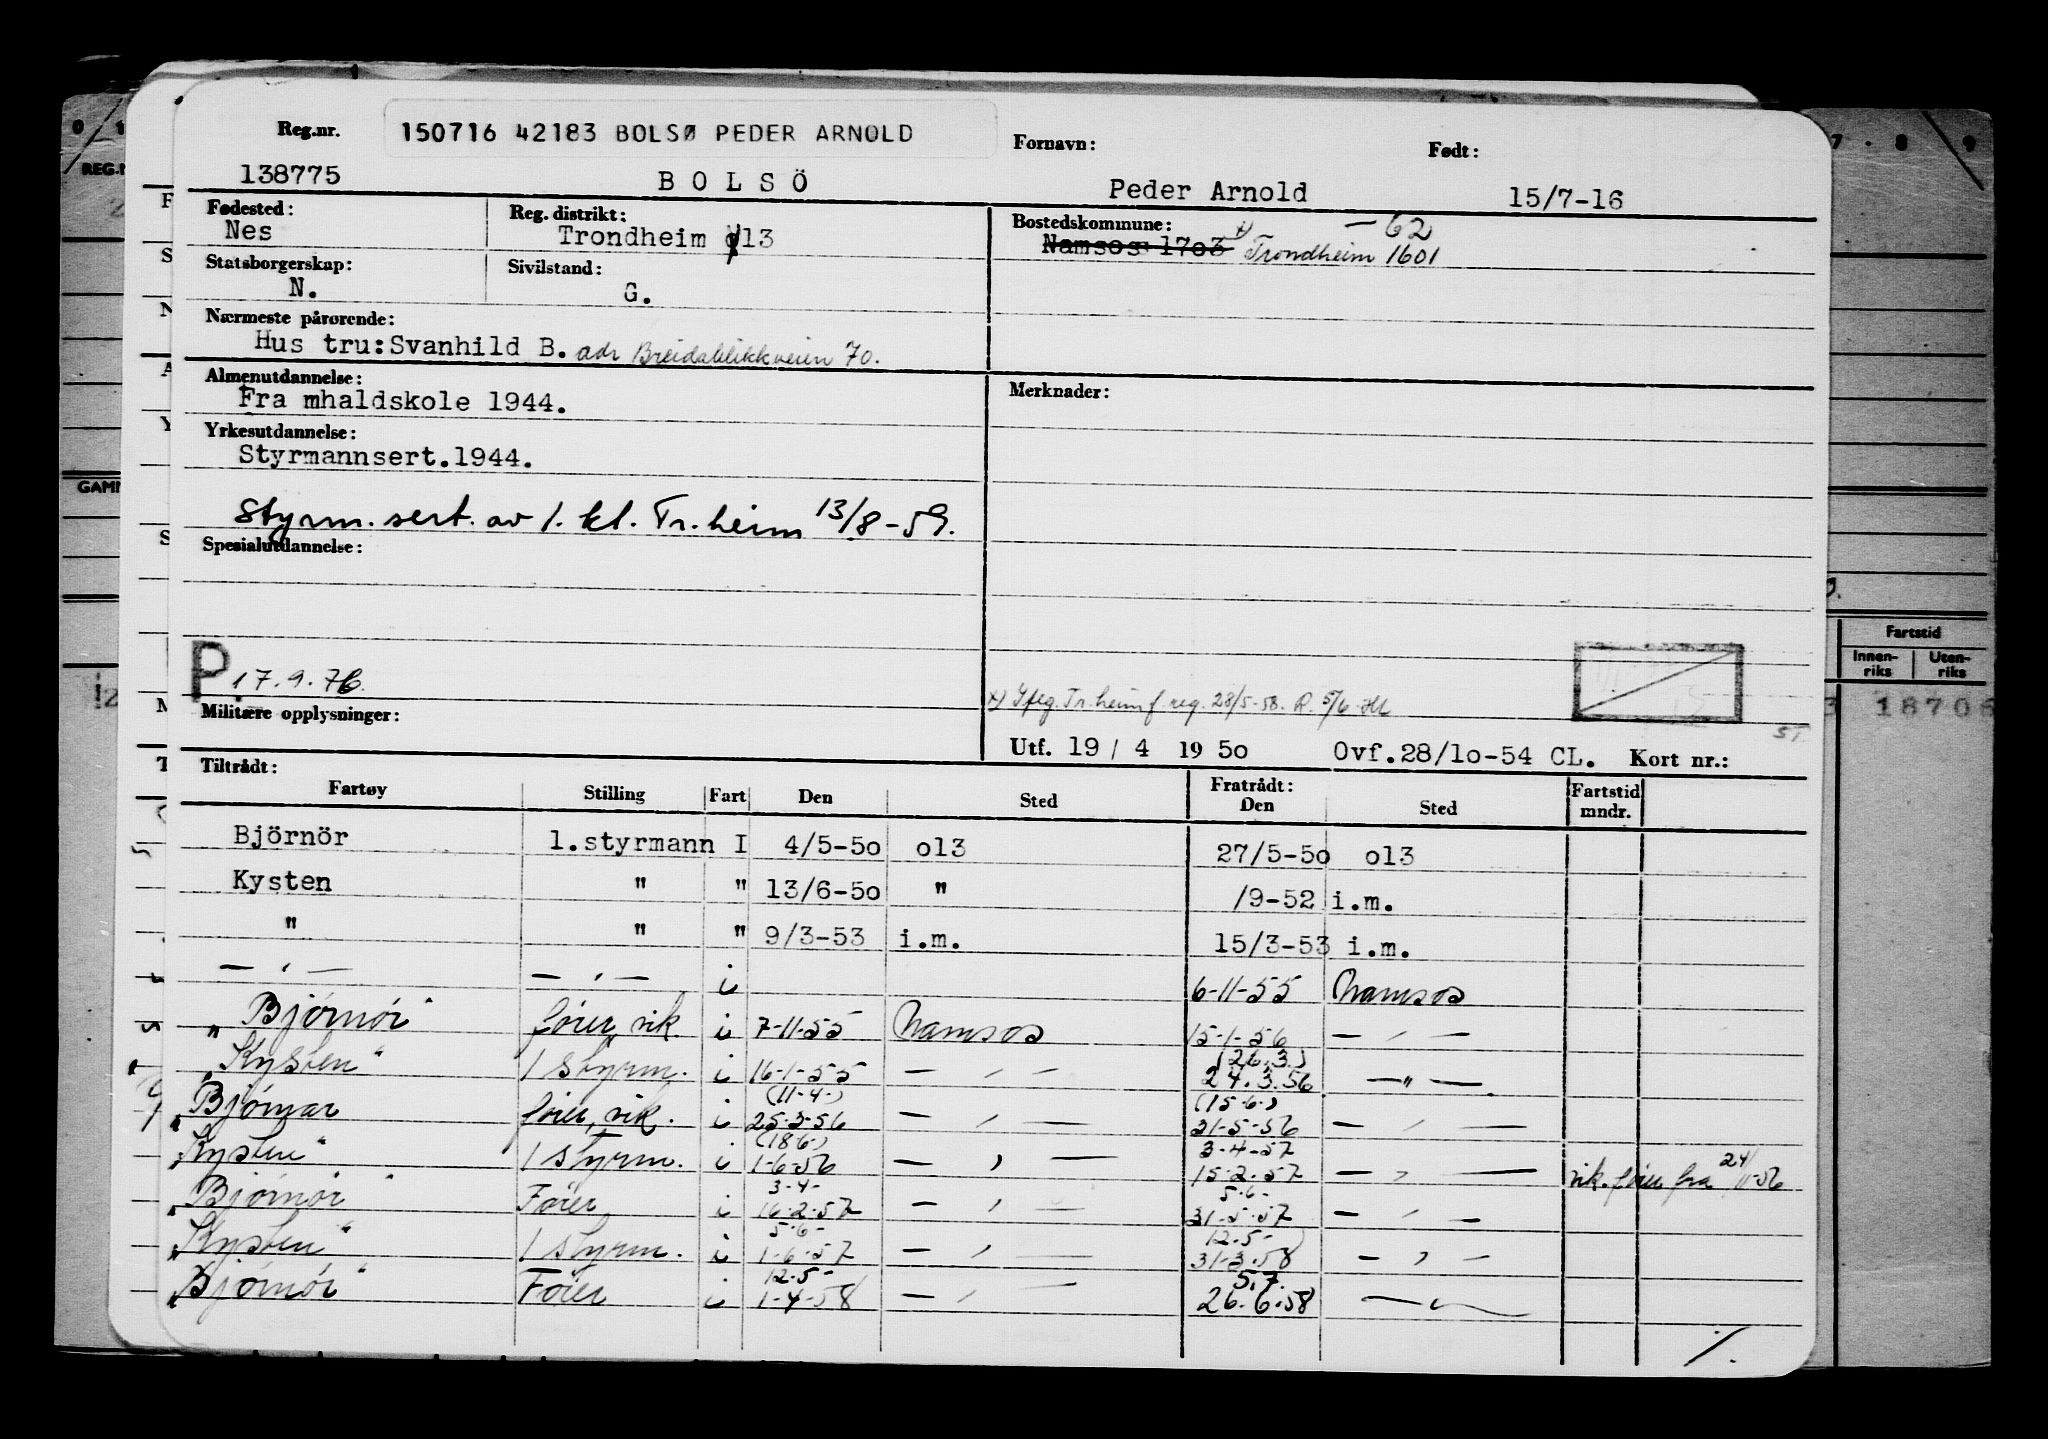 Reg.nr. 150716 42183 BOLSØ PEDER ARNOLD Fornavn: Født:
138775 B O L S Ö Peder Arnold 15/7-16
Fødested: Reg. distrikt: Bostedskommune: x) — 62
Nes Trondheim 013 Namsos 1703 Trondheim 1601
Statsborgerskap: Sivilstand:
N. G.
Nærmeste pårørende:
Hus tru:Svanhild B. adr Breidablikkveien 70.
Almenutdannelse: Merknader:
Fra mhaldskole 1944.
Yrkesutdannelse:
Styrmannsert.1944.
Styrm. sert. av 1. kl. Tr.heim 13/8-59.
Spesialutdannelse:
P. 17.9.76.
x) Tr.heim f. reg. 28/5-58. R. 5/6
Militære opplysninger:
ST
Utf. 19 / 4 19 50 Ovf.28/10-54 CL. Kort nr.:
Tiltrådt: Fratrådt: Fartstid
Fartøy Stilling Fart Den Sted Den Sted mndr.
Björnör 1.styrmann I 4/5-50 o13 27/5-50 o13
Kysten " " 13/6-50 " /9-52 i.m.
" " " 9/3-53 i.m. 15/3-53 i.m.
— " — — " — i 6-11-55 Namsos
"Bjørnør" fører, vik i 7-11-55 Namsos 15-1-56 — " —
"Kysten" 1 styrm. i 16-1-55 — " — (26.3.) 24.3.56 — " —
"Bjørnør fører, vik. i (11-4-) 25-3-56 — " — (15-6-) 31-5-56 — " —
"Kysten" 1 styrm. i (18-6) 1-6-56 — " — 3-4-57 15-2-57 — " — vik. fører fra 24/11-56
"Bjørnør" Fører i 3-4- 16-2-57 — " — 5-6- 31-5-57 — " —
"Kysten" 1 styrm. i 5-6- 1-6-57 — " — 12-5- 31-3-58 — " —
"Bjørnør" Fører i 12-5- 1-4-58 — " — 5.7. 26-6-58 — " —
%.
0 1
REG.N
GAMM
7 . 8 9
Fartstid
Innen-riks Uten-riks
3 18706